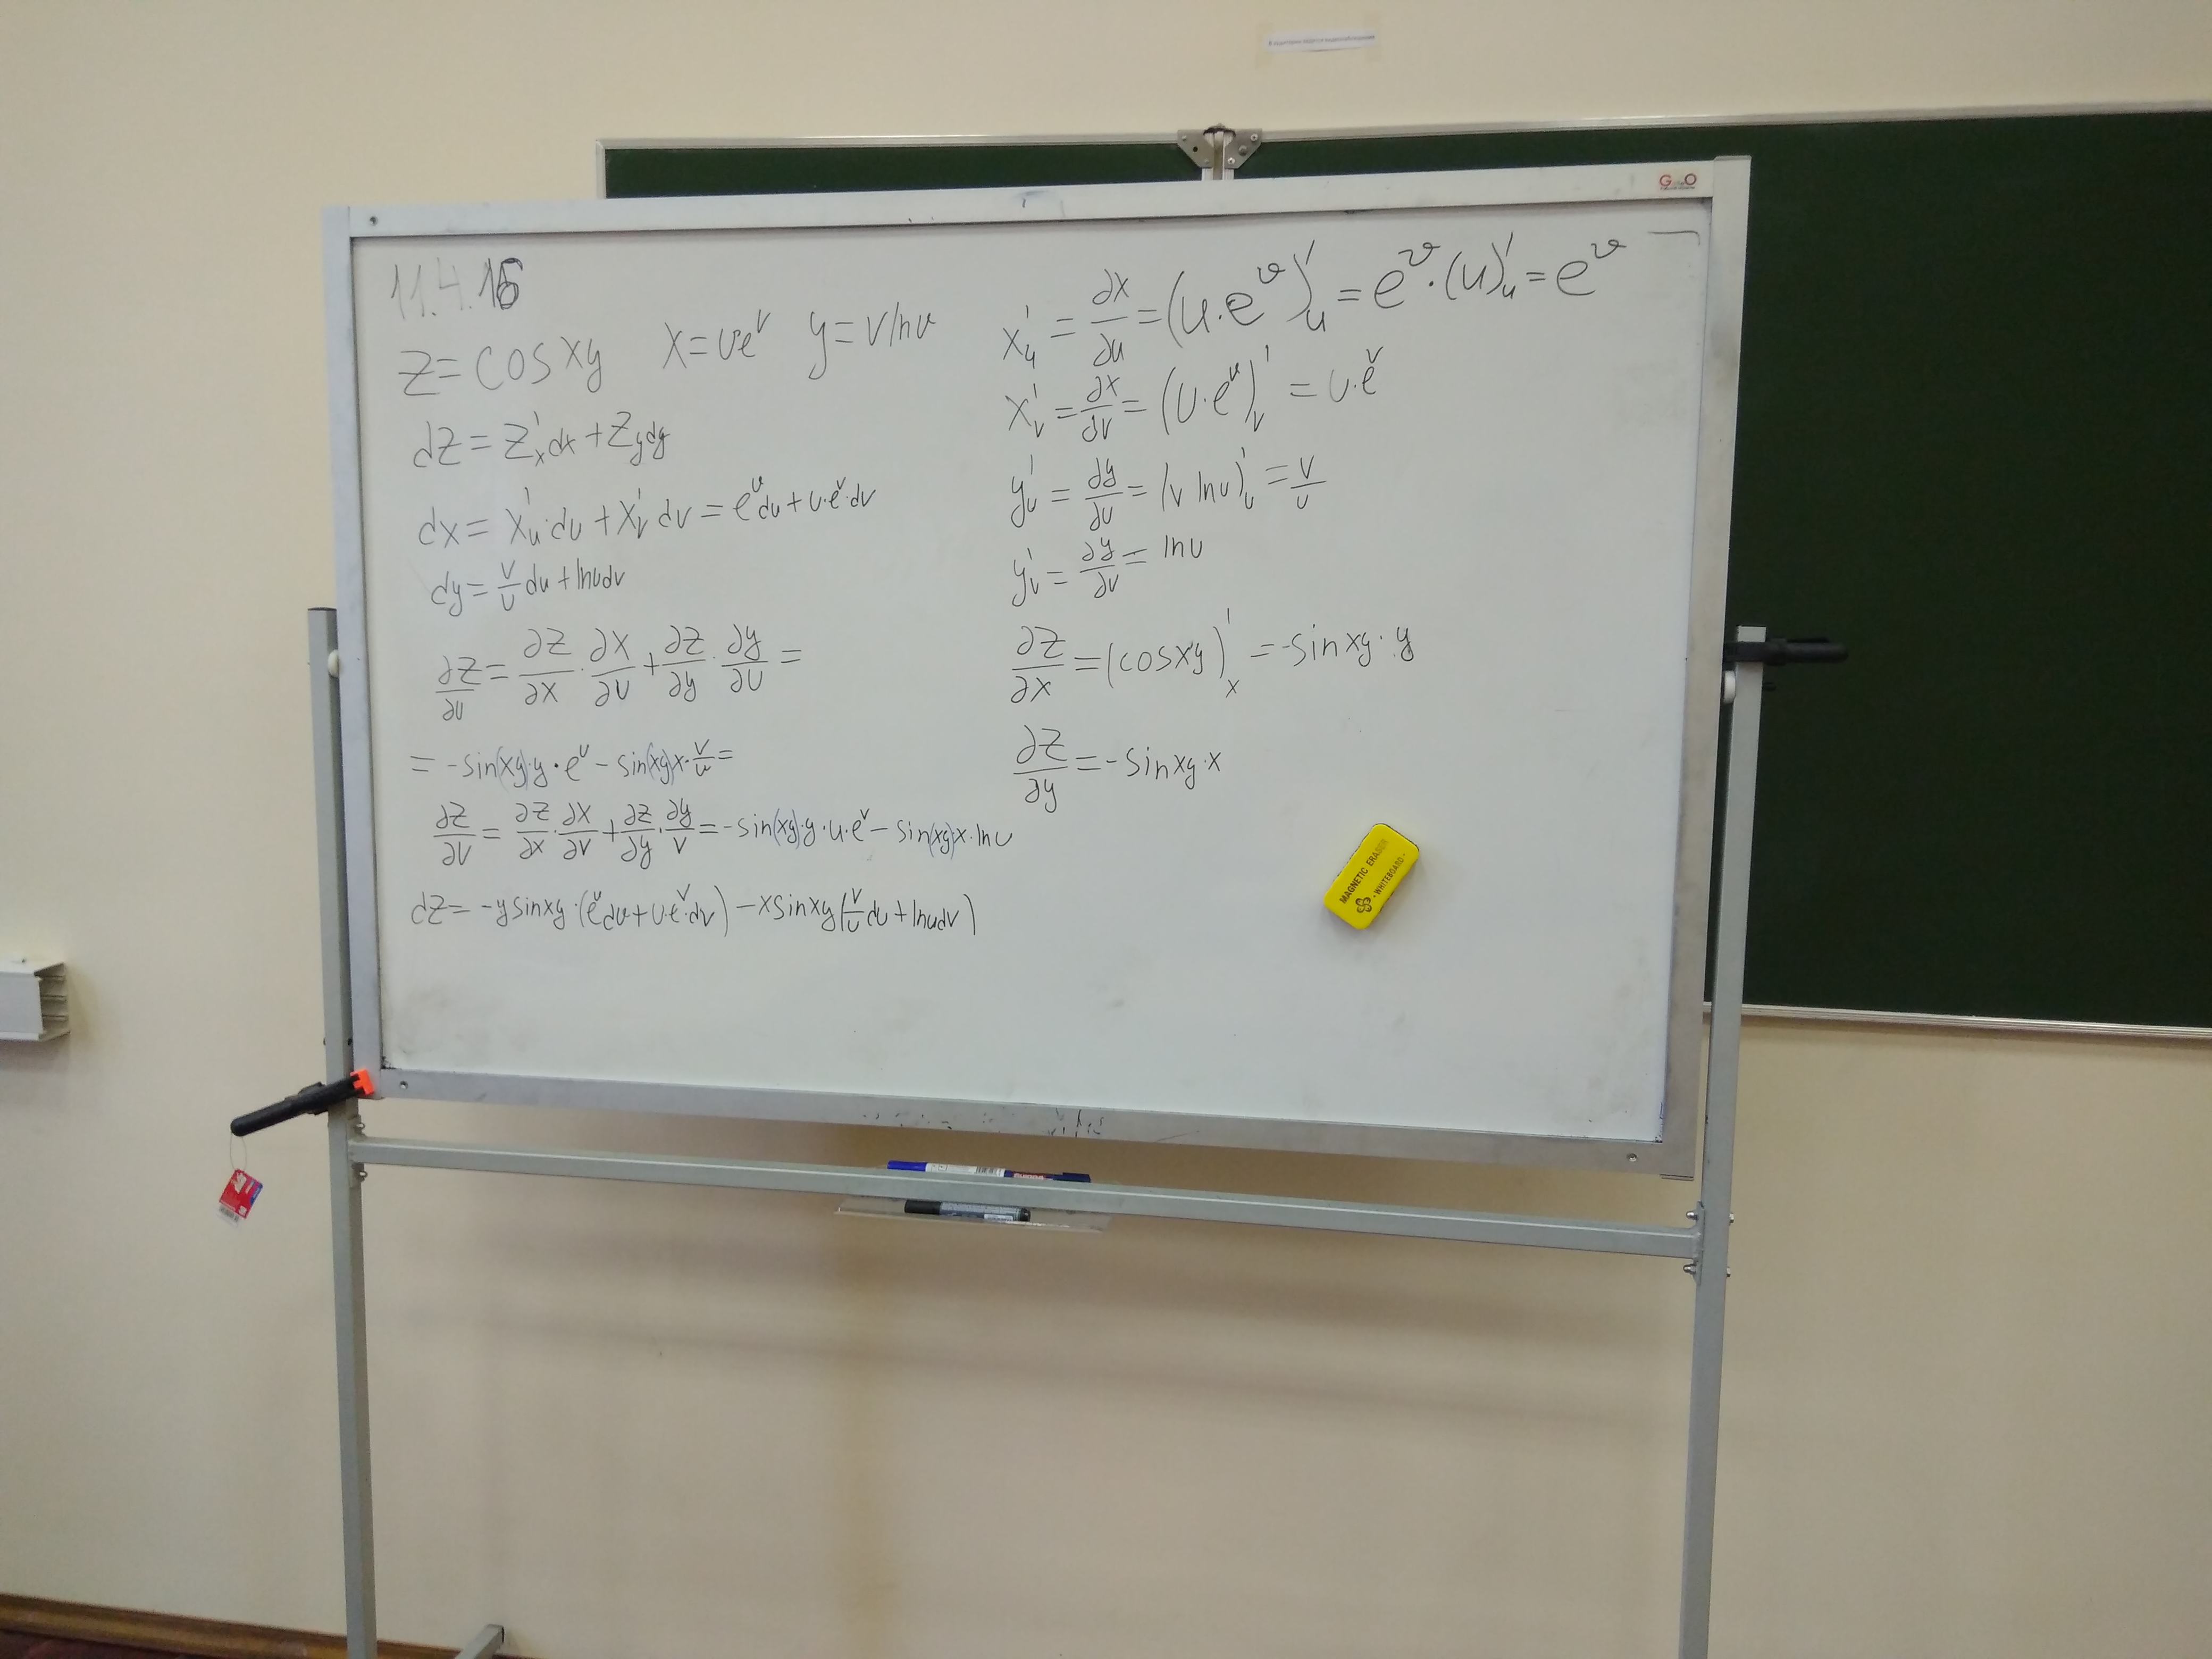 11.4.16
z = cos xy x = ue^v y = v ln u
dz = z'_x dx + z_y dy
dx = x'_u · du + x'_v dv = e^v du + u·e^v·dv
dy = v/u du + ln u dv
∂z/∂u = ∂z/∂x · ∂x/∂u + ∂z/∂y · ∂y/∂u =
= -sin(xy)·y · e^v - sin(xy)·x · v/u =
∂z/∂v = ∂z/∂x · ∂x/∂v + ∂z/∂y · ∂y/v = -sin(xy)·y·u·e^v - sin(xy)·x·ln u
dz = -y sin xy · (e^v du + u·e^v·dv) - x sin xy (v/u du + ln u dv)
x'_u = ∂x/∂u = (u·e^v)'_u = e^v · (u)'_u = e^v
x'_v = ∂x/∂v = (u·e^v)'_v = u·e^v
y'_u = ∂y/∂u = (v ln u)'_u = v/u
y'_v = ∂y/∂v = ln u
∂z/∂x = (cos xy)'_x = -sin xy · y
∂z/∂y = -sin xy · x
MAGNETIC ERASER
- WHITEBOARD -